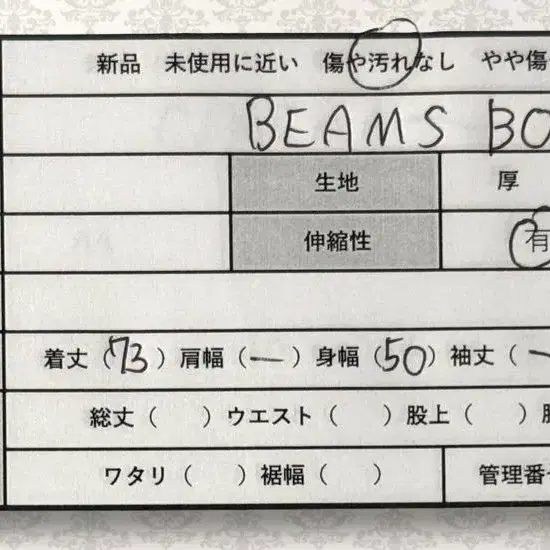 新品 未使用に近い 傷や汚れなし やや傷
BEAMS BO
生地 厚
伸縮性 有
着丈(73) 肩幅(ー) 身幅(50) 袖丈(
総丈( ) ウエスト( ) 股上( )
ワタリ( ) 裾幅( ) 管理番